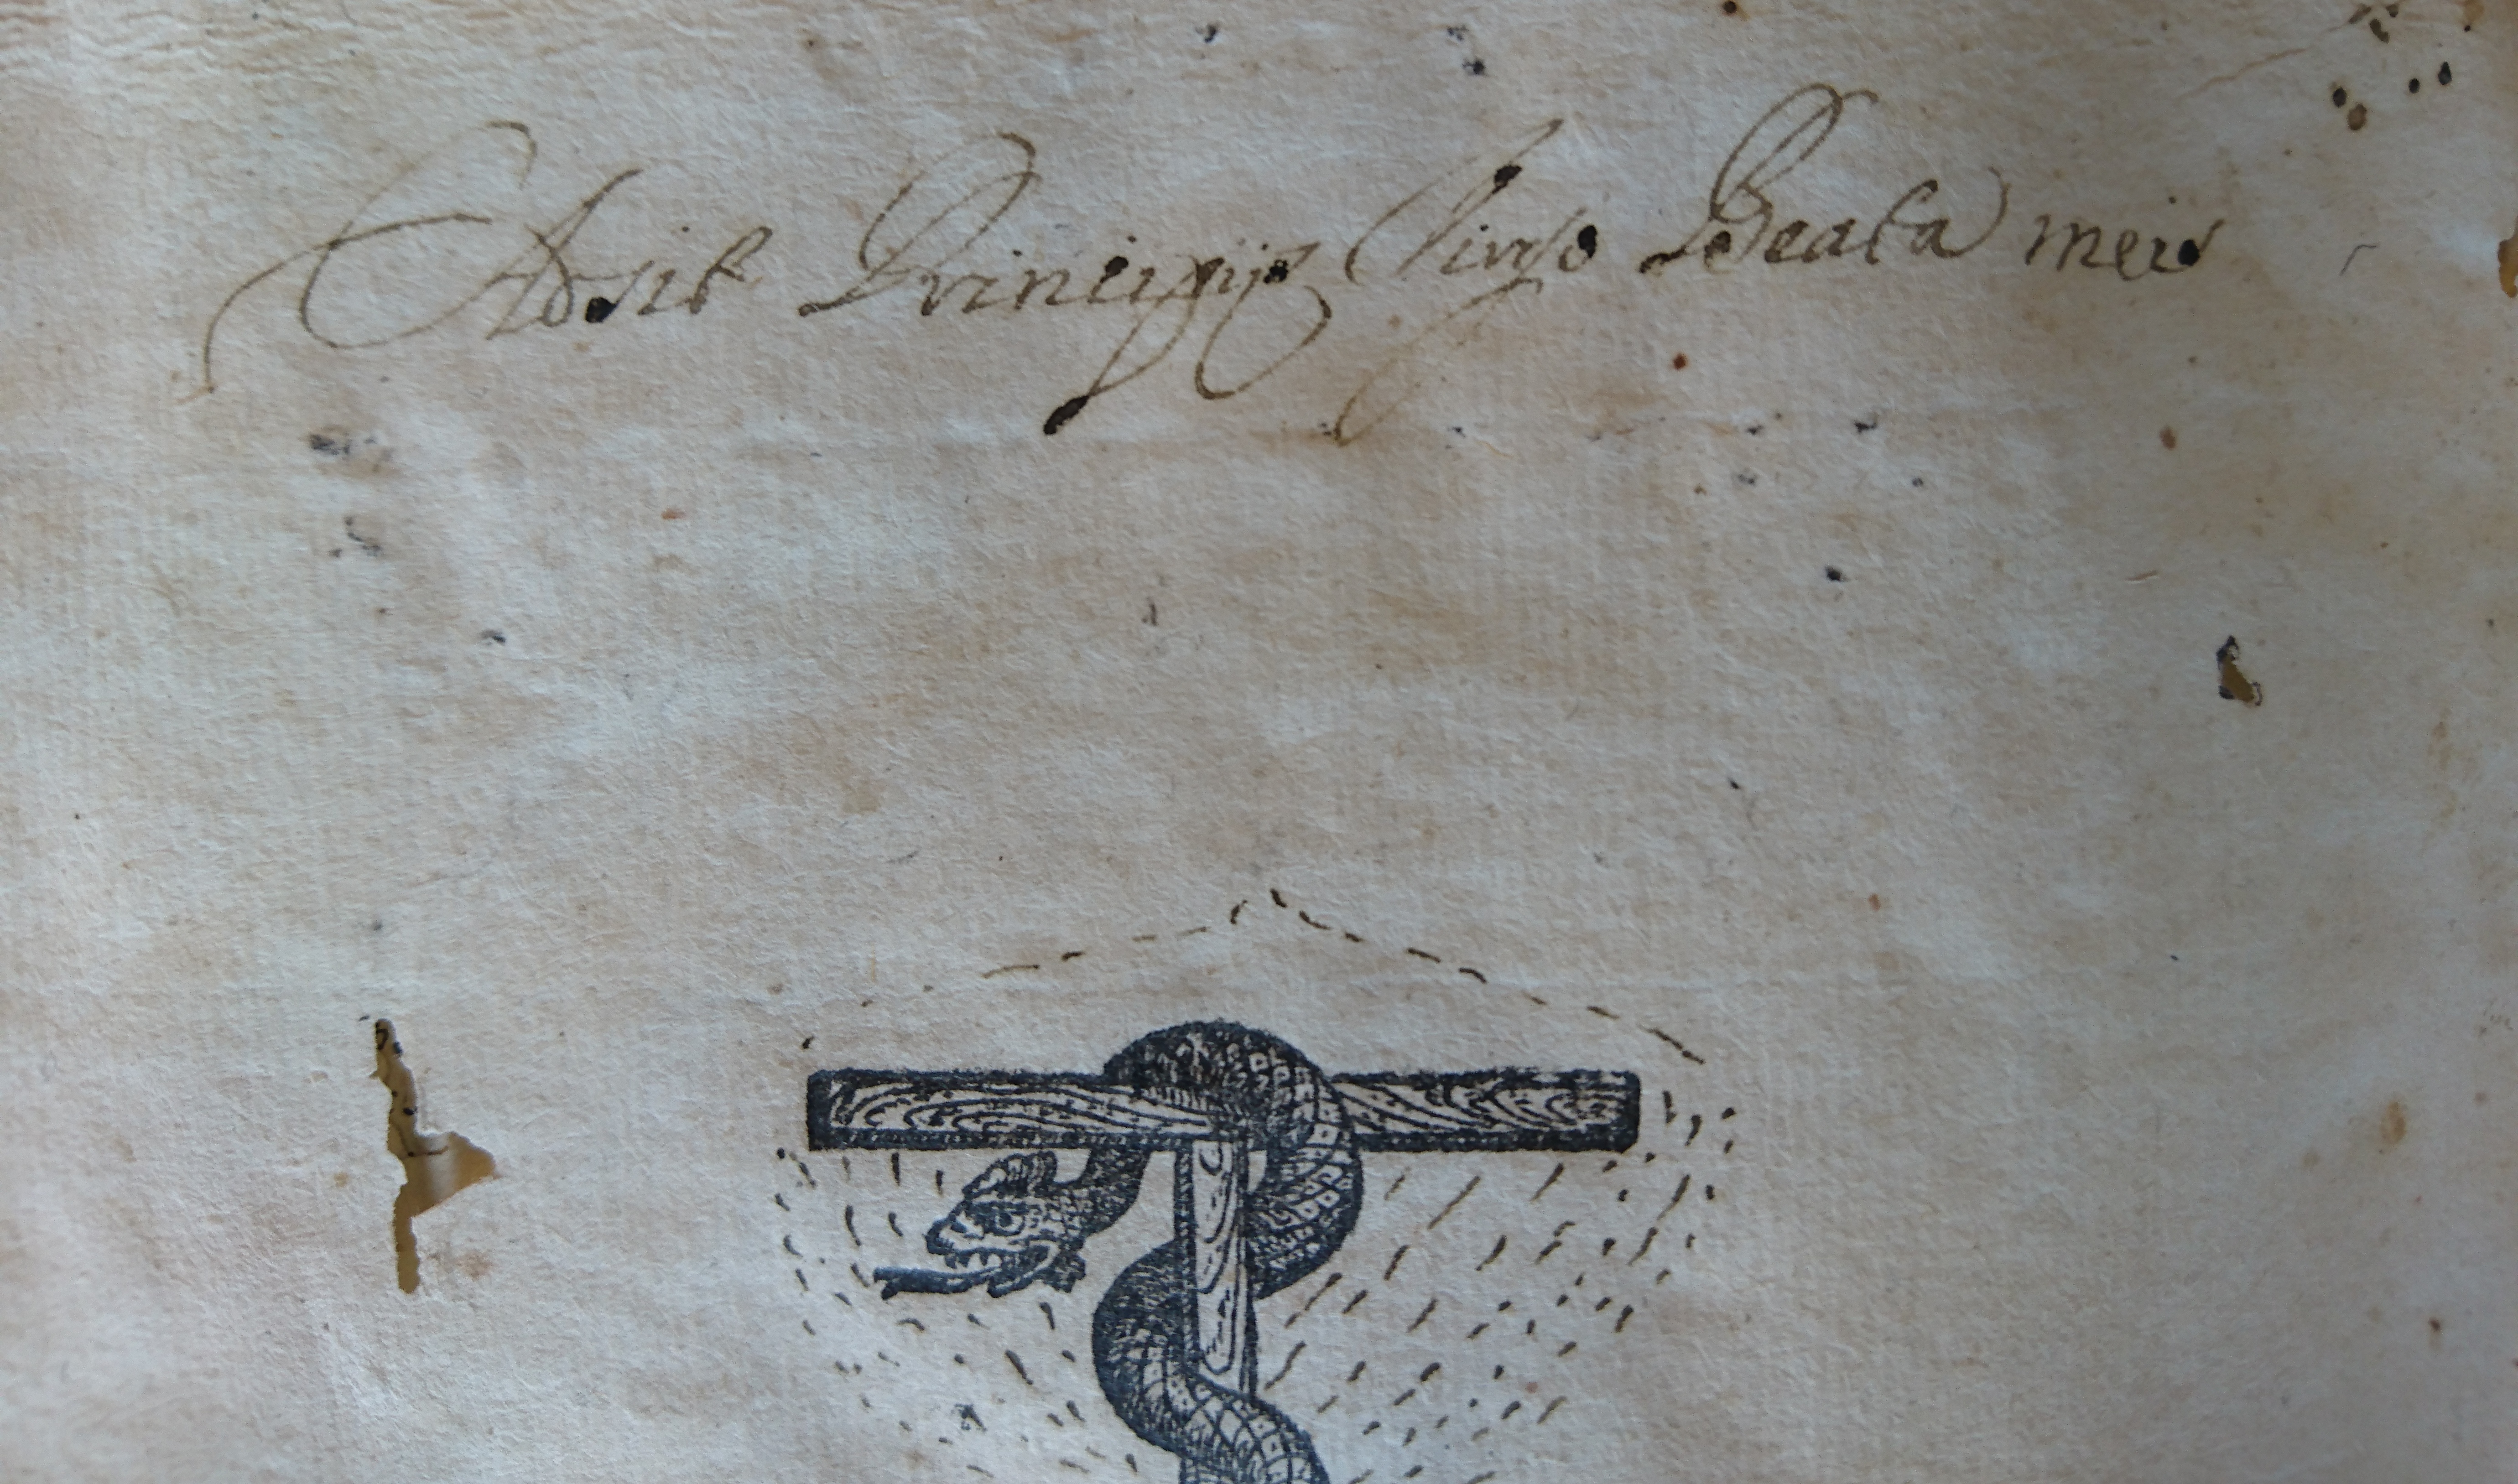 Adsit Principijs Virgo Beata meis